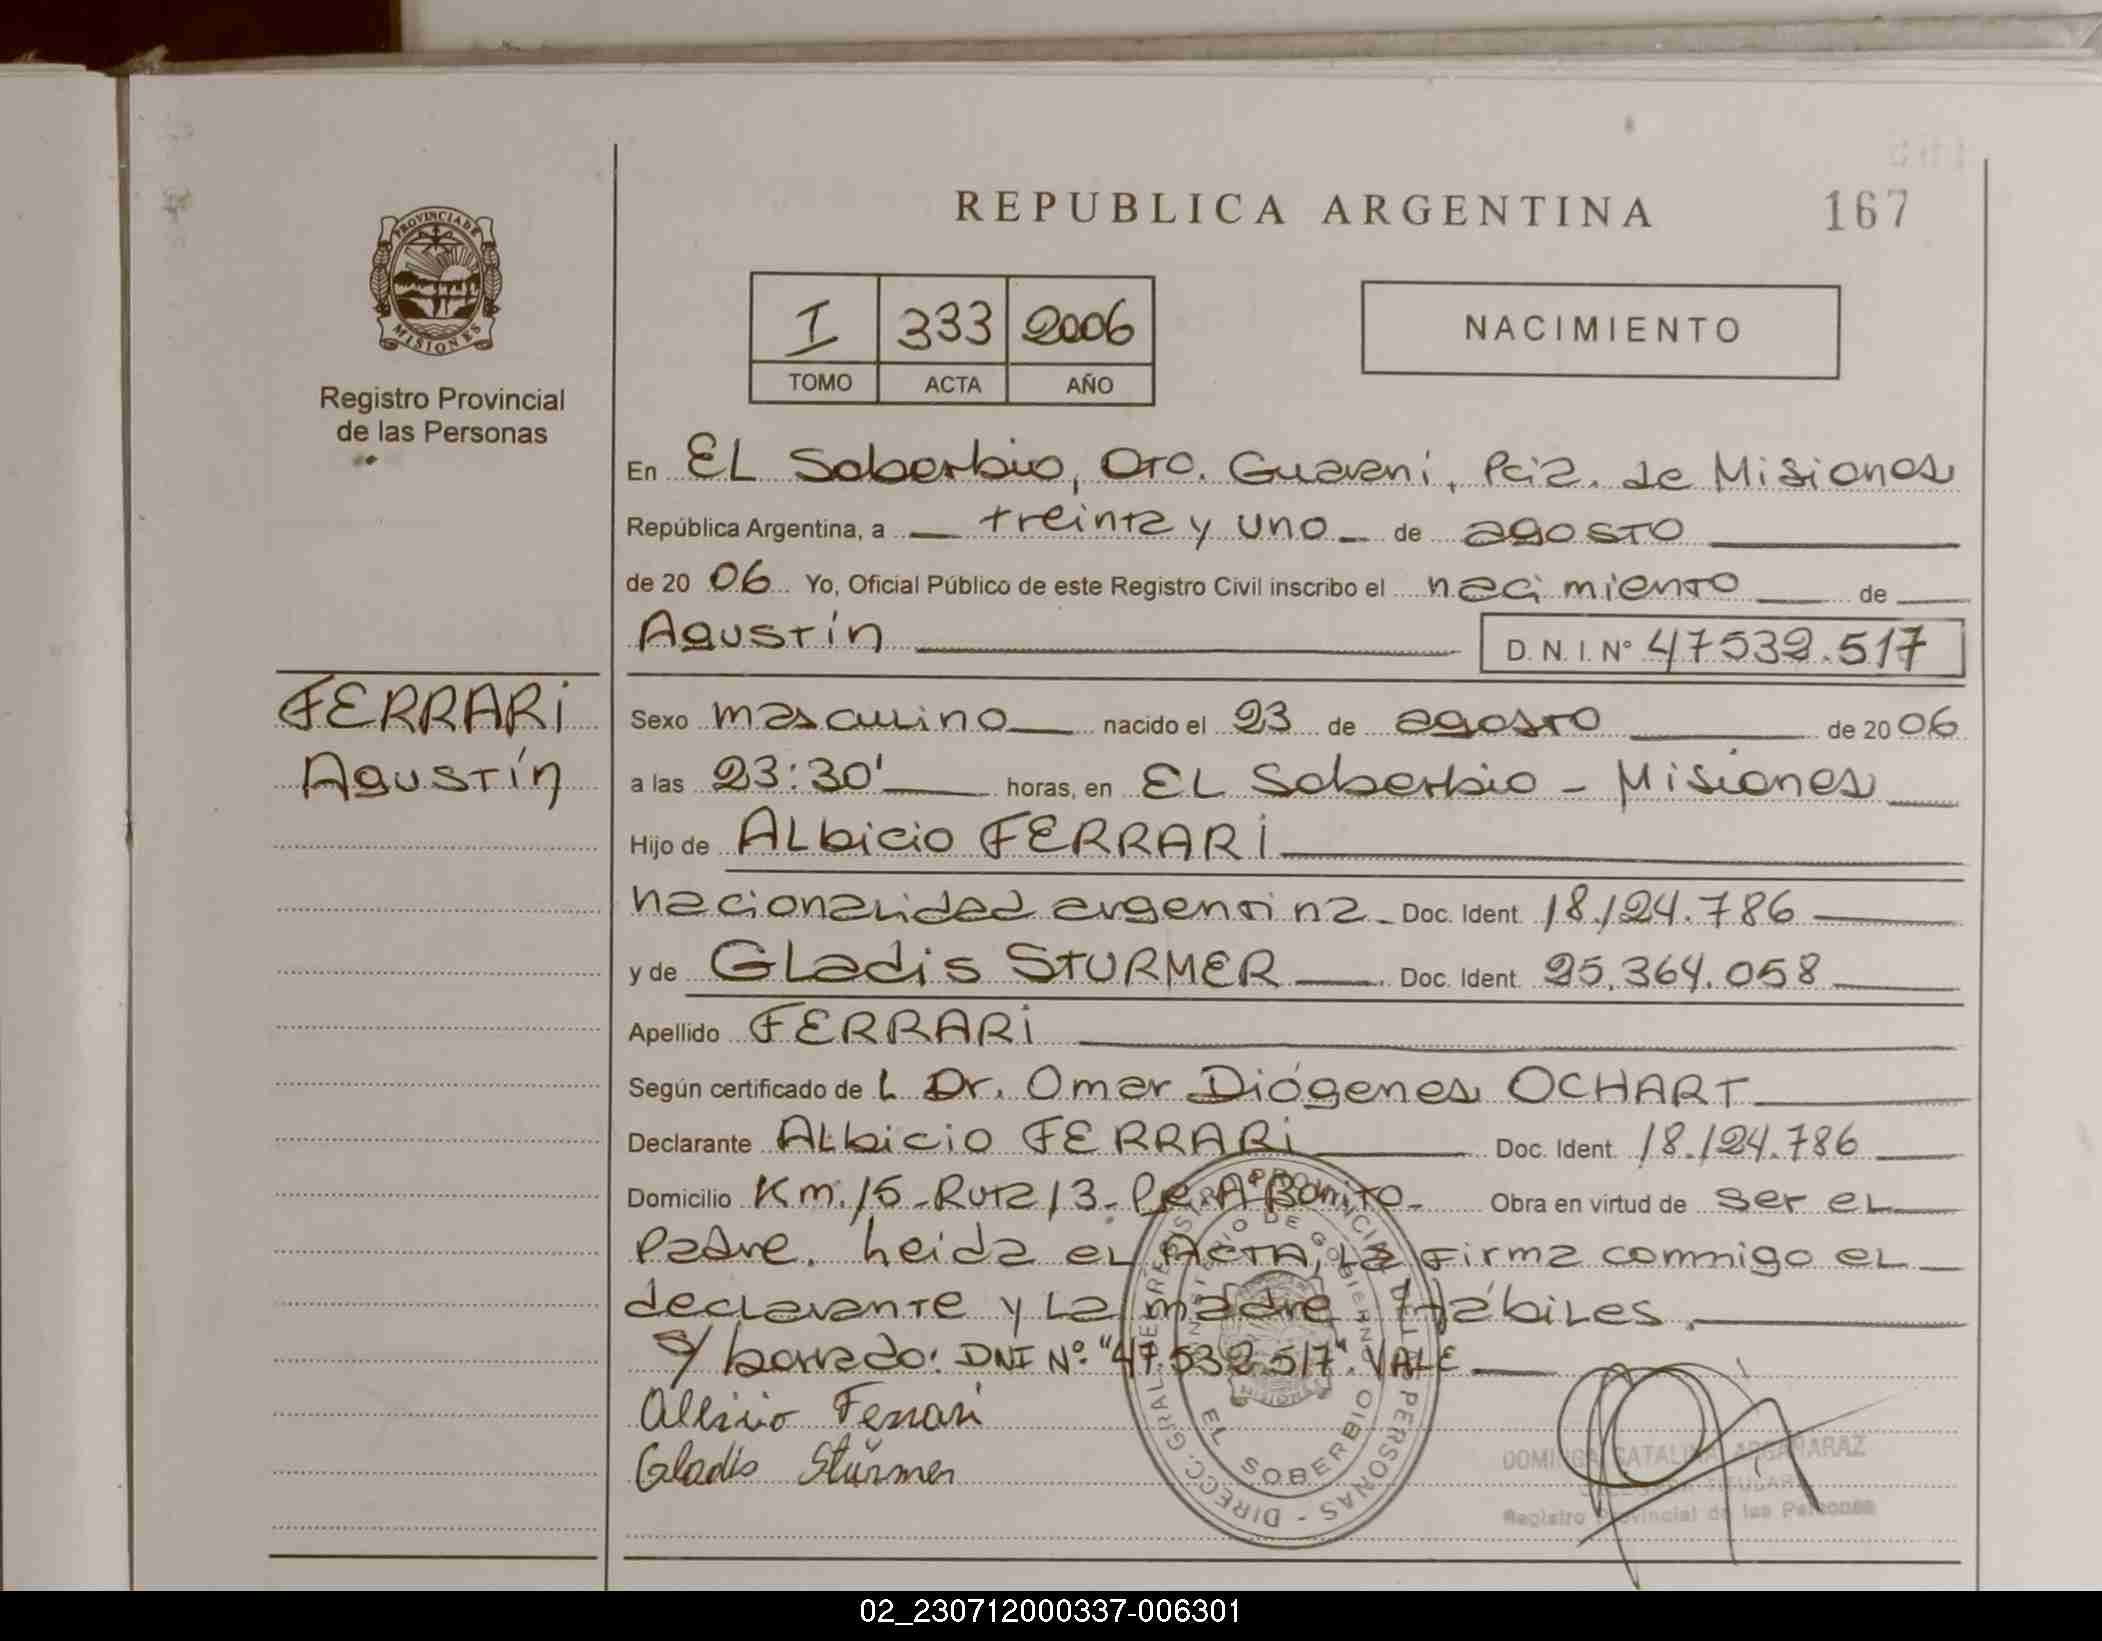 REPUBLICA ARGENTINA
167
PROVINCIA DE
MISIONES
Registro Provincial
de las Personas
I 333 2006
TOMO ACTA AÑO
NACIMIENTO
En EL Soberbio, Dto. Guaraní, Pcia. de Misiones
República Argentina, a treinta y uno de agosto
de 20 06 Yo, Oficial Público de este Registro Civil inscribo el nacimiento de
Agustín D.N.I. Nº 47532.517
FERRARi
Agustín
Sexo masculino nacido el 23 de agosto de 20 06
a las 23:30' horas, en EL Soberbio - Misiones
Hijo de ALbicio FERRARi
nacionalidad argentina Doc. Ident. 18.124.786
y de GLadis STURMER Doc. Ident. 25.364.058
Apellido FERRARi
Según certificado de L Dr. Omar Diógenes OCHART
Declarante ALbicio FERRARi Doc. Ident. 18.124.786
Domicilio Km. 15 - Ruta 13 - Pje. A. Bonito - Obra en virtud de ser eL
Padre. Leida eL ACTA, La firma conmigo eL
decLarante y La madre Hábiles.
S/ borrado: DNI Nº "47.532.517". VALE
Albicio Ferrari
Gladis Stürmer
DIRECC. GRAL. DE REGISTRO PROVINCIAL DE LAS PERSONAS -
MINISTERIO DE GOBIERNO
EL SOBERBIO
DOMINGA CATALINA ARGAÑARAZ
TITULAR
Registro Provincial de las Personas
02_230712000337-006301